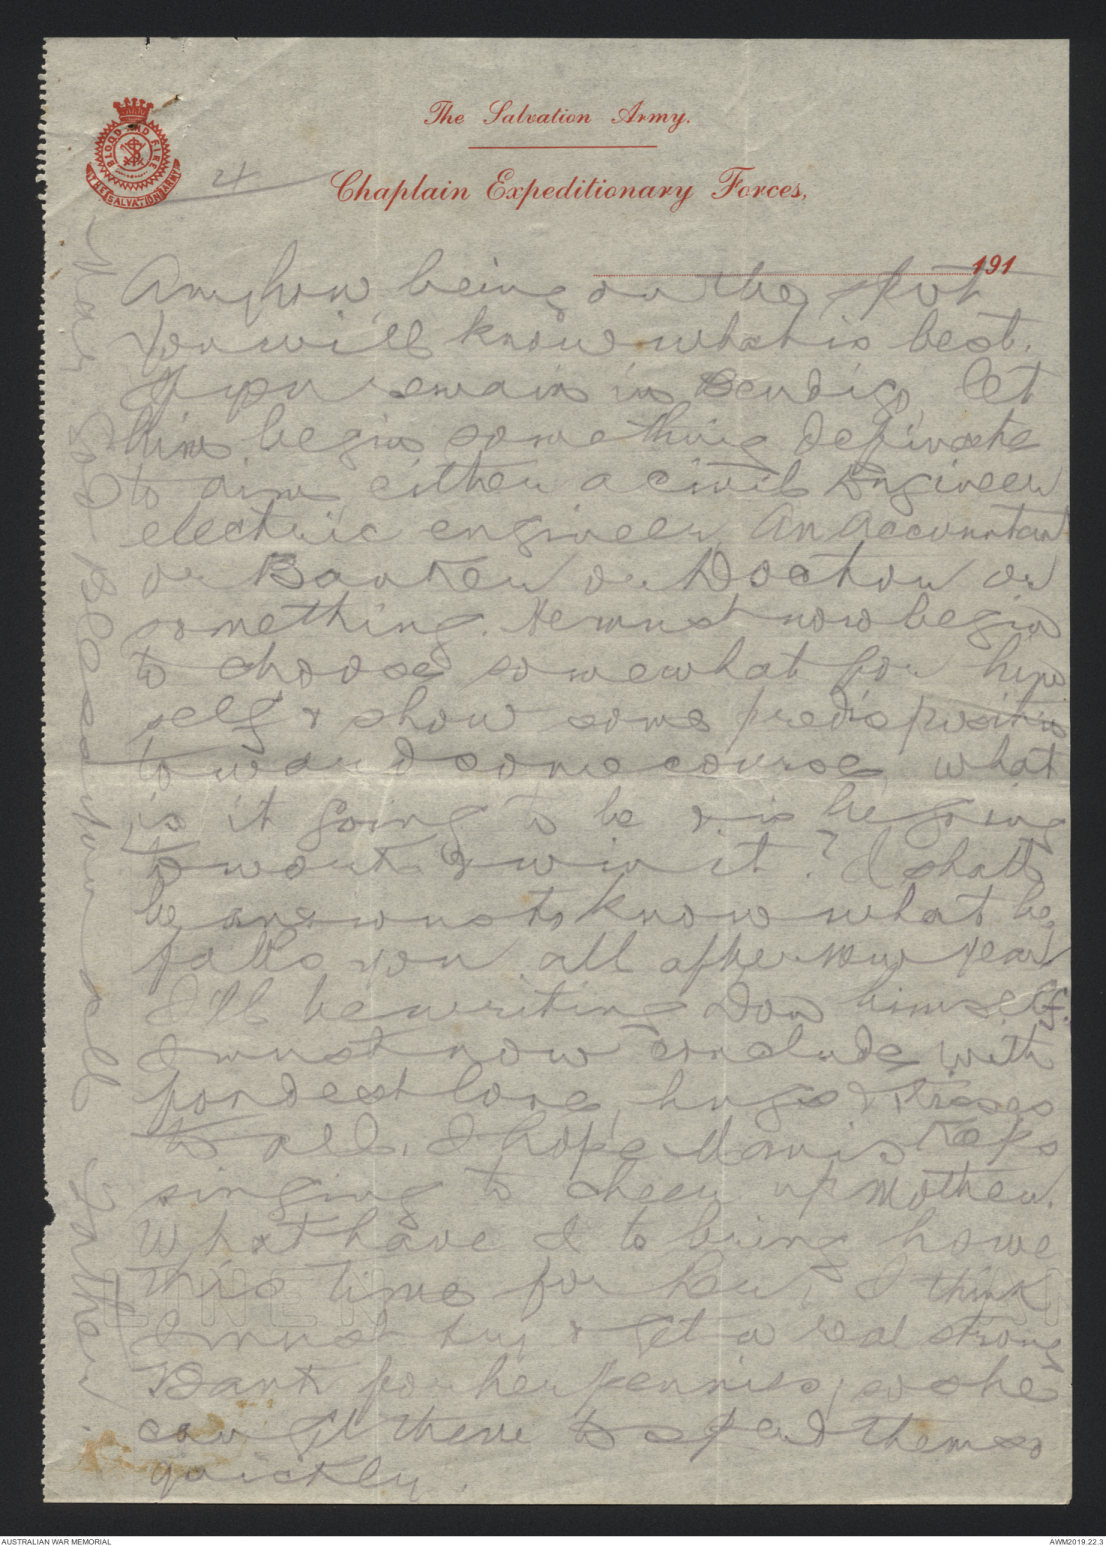 The Salvation Army.
Chaplain Expeditionary Forces,
BLOOD AND FIRE
THE SALVATION ARMY
4
191
Anyhow being on the spot
You will know what is best.
If you remain in Bendigo, let
him begin something definite
to aim either a civil Engineer
electric engineer, An Accountant
or Banker or Doctor or
something. He must now begin
to choose somewhat for him
self & show some predisposition
toward some course, what
is it going to be & is he going
to work & win it? I shall
be anxious to know what be
falls you all after New Year
I'll be writing Don himself.
I must now conclude with
fondest love, hugs & kisses
to all. I hope Mavis keeps
singing to cheer up Mother.
What have I to bring home
this time for her? I think
I must try & get a real strong
Bank for her pennies, so she
can get them to spend them so
quickly.
May God Bless you all Father.
AUSTRALIAN WAR MEMORIAL
AWM2019.22.3